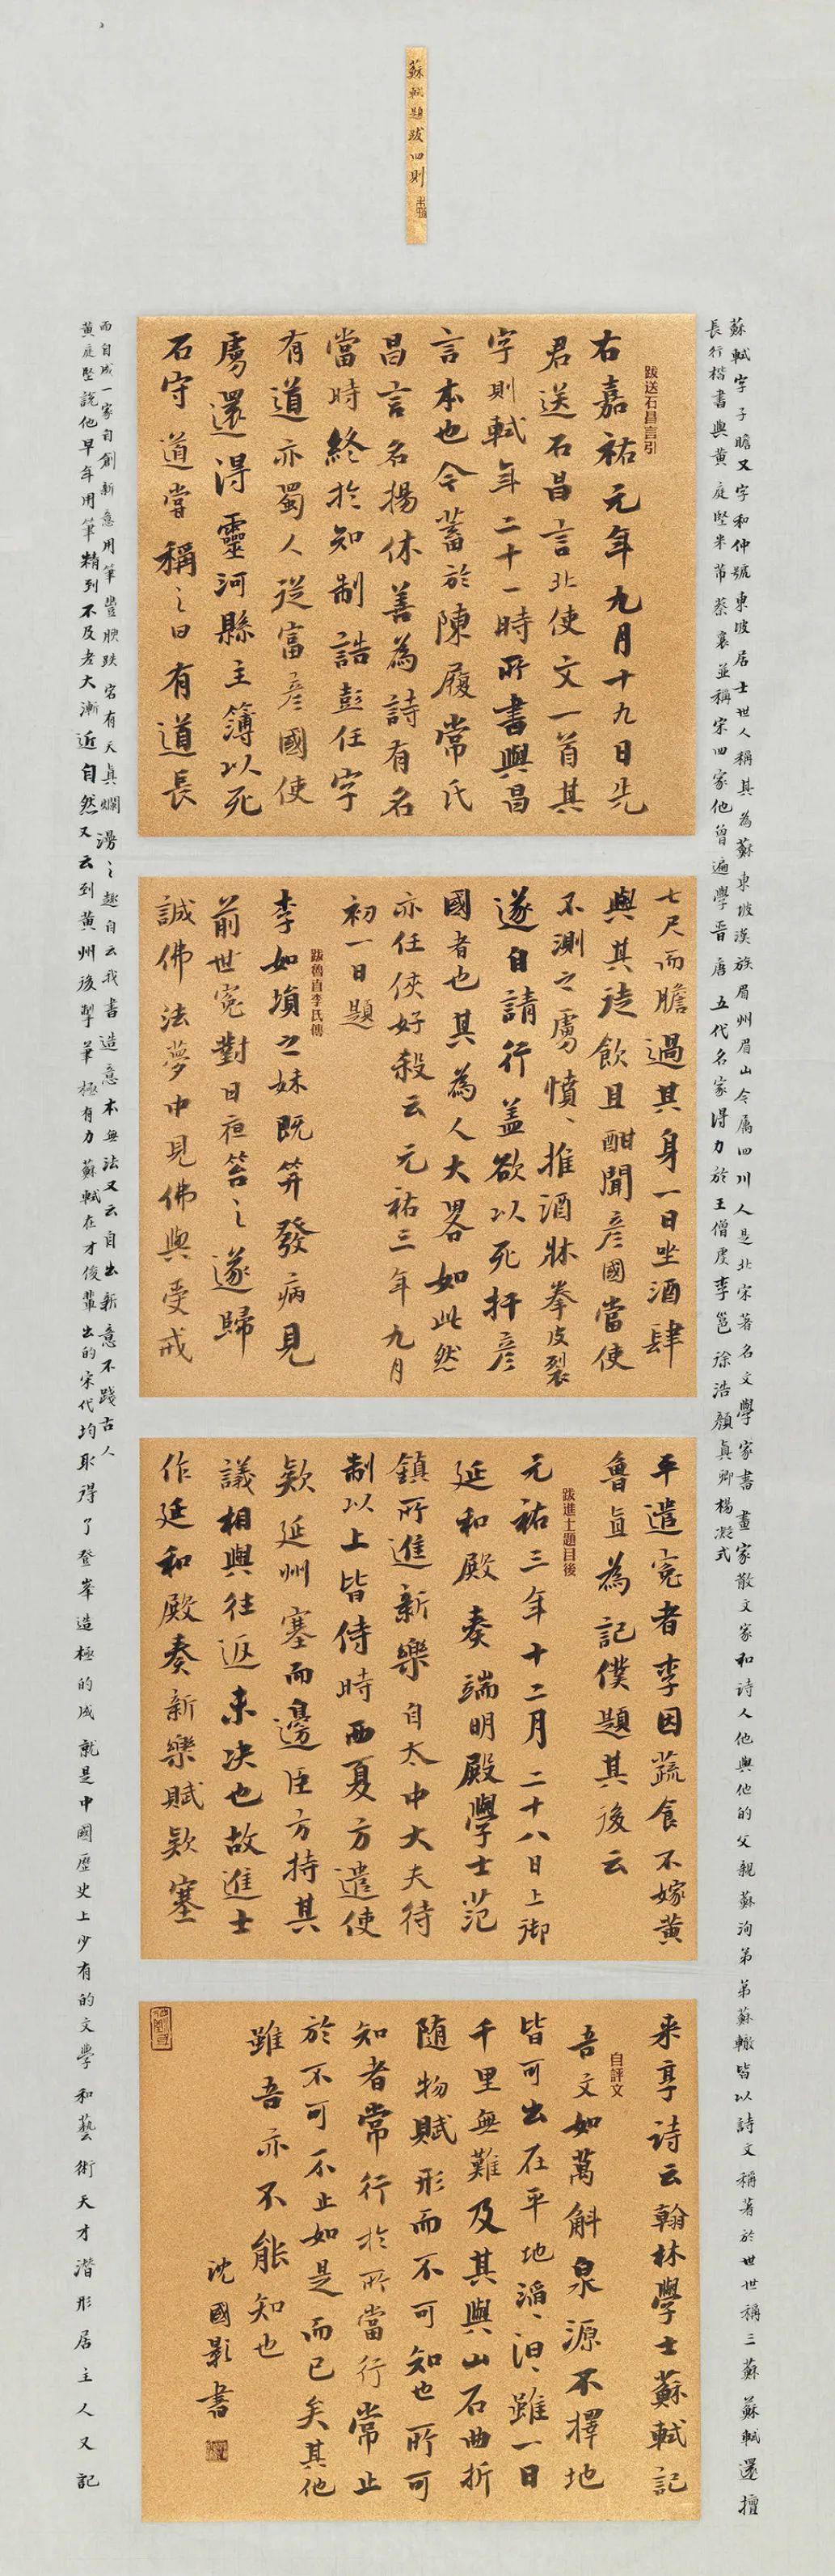 蘇軾題跋四則
蘇軾字子瞻又字和仲號東坡居士世人稱其為蘇東坡漢族眉州眉山今屬四川人是北宋著名文學家書畫家散文家和詩人他與他的父親蘇洵弟弟蘇轍皆以詩文稱著於世世稱三蘇蘇軾還擅
長行楷書與黃庭堅米芾蔡襄並稱宋四家他曾遍學晉唐五代名家得力於王僧虔李邕徐浩顏真卿楊凝式
跋送石昌言引
右嘉祐元年九月十九日先
君送石昌言北使文一首其
字則軾年二十一時所書與昌
言本也今蓄於陳履常氏
昌言名揚休善為詩有名
當時終於知制誥彭任字
有道亦蜀人從富彥國使
虜還得靈河縣主簿以死
石守道嘗稱之曰有道長
七尺而膽過其身一日坐酒肆
與其徒飲且酣聞彥國當使
不測之虜憤憤推酒牀拳皮裂
遂自請行蓋欲以死扞彥
國者也其為人大畧如此然
亦任俠好殺云元祐三年九月
初一日題
跋魯直李氏傳
李如塤之妹既笄發病見
前世冤對日夜笞之遂歸
誠佛法夢中見佛與受戒
平遣冤者李因蔬食不嫁黃
魯直為記僕題其後云
跋進士題目後
元祐三年十二月二十八日上御
延和殿奏端明殿學士范
鎮所進新樂自太中大夫待
制以上皆侍時西夏方遣使
欵延州塞而邊臣方持其
議相與往返未决也故進士
作延和殿奏新樂賦欵塞
来享詩云翰林學士蘇軾記
自評文
吾文如萬斛泉源不擇地
皆可出在平地滔滔汩汩雖一日
千里無難及其與山石曲折
随物賦形而不可知也所可
知者常行於所當行常止
於不可不止如是而已矣其他
雖吾亦不能知也
沈國影書
而自成一家自創新意用筆豐腴跌宕有天真爛漫之趣自云我書造意本無法又云自出新意不踐古人
黃庭堅說他早年用筆精到不及老大漸近自然又云到黃州後掣筆極有力蘇軾在才俊輩出的宋代均取得了登峯造極的成就是中國歷史上少有的文學和藝術天才潛形居主人又記